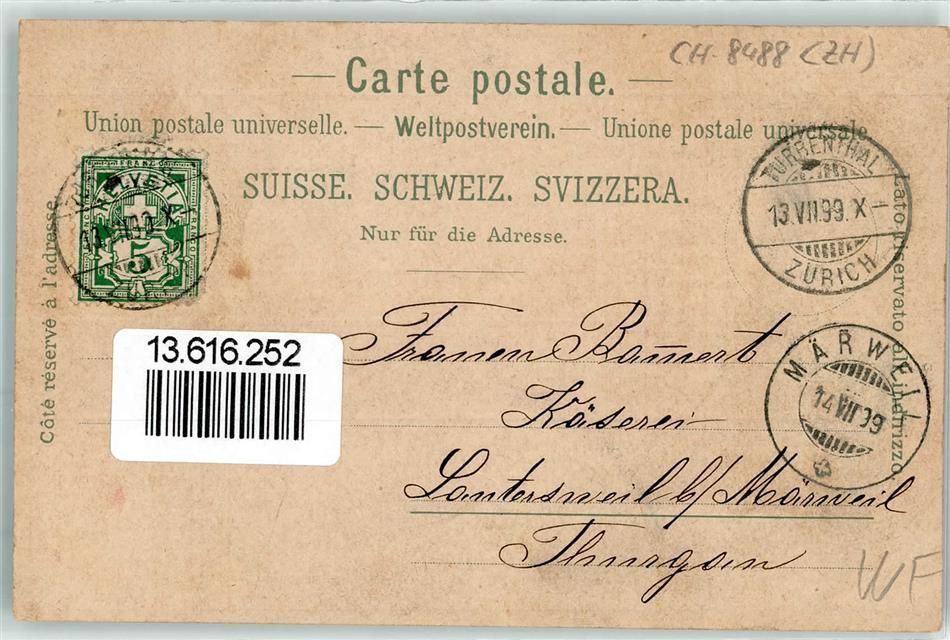 CH-8488 (ZH)
— Carte postale. —
Union postale universelle. — Weltpostverein. — Unione postale universale.
SUISSE. SCHWEIZ. SVIZZERA.
Nur für die Adresse.
Côté réservé à l'adresse.
Lato riservato all'indirizzo.
FRANCO
HELVETIA
FRANCO
FRANCO
5
TURBENTHAL
13.VII.99.X
ZÜRICH
13.616.252
MÄRWEIL
14 VII 99
Frauen Bam̄ert
Käserei
Lantersweil b/ Märweil
Thurgau
WF